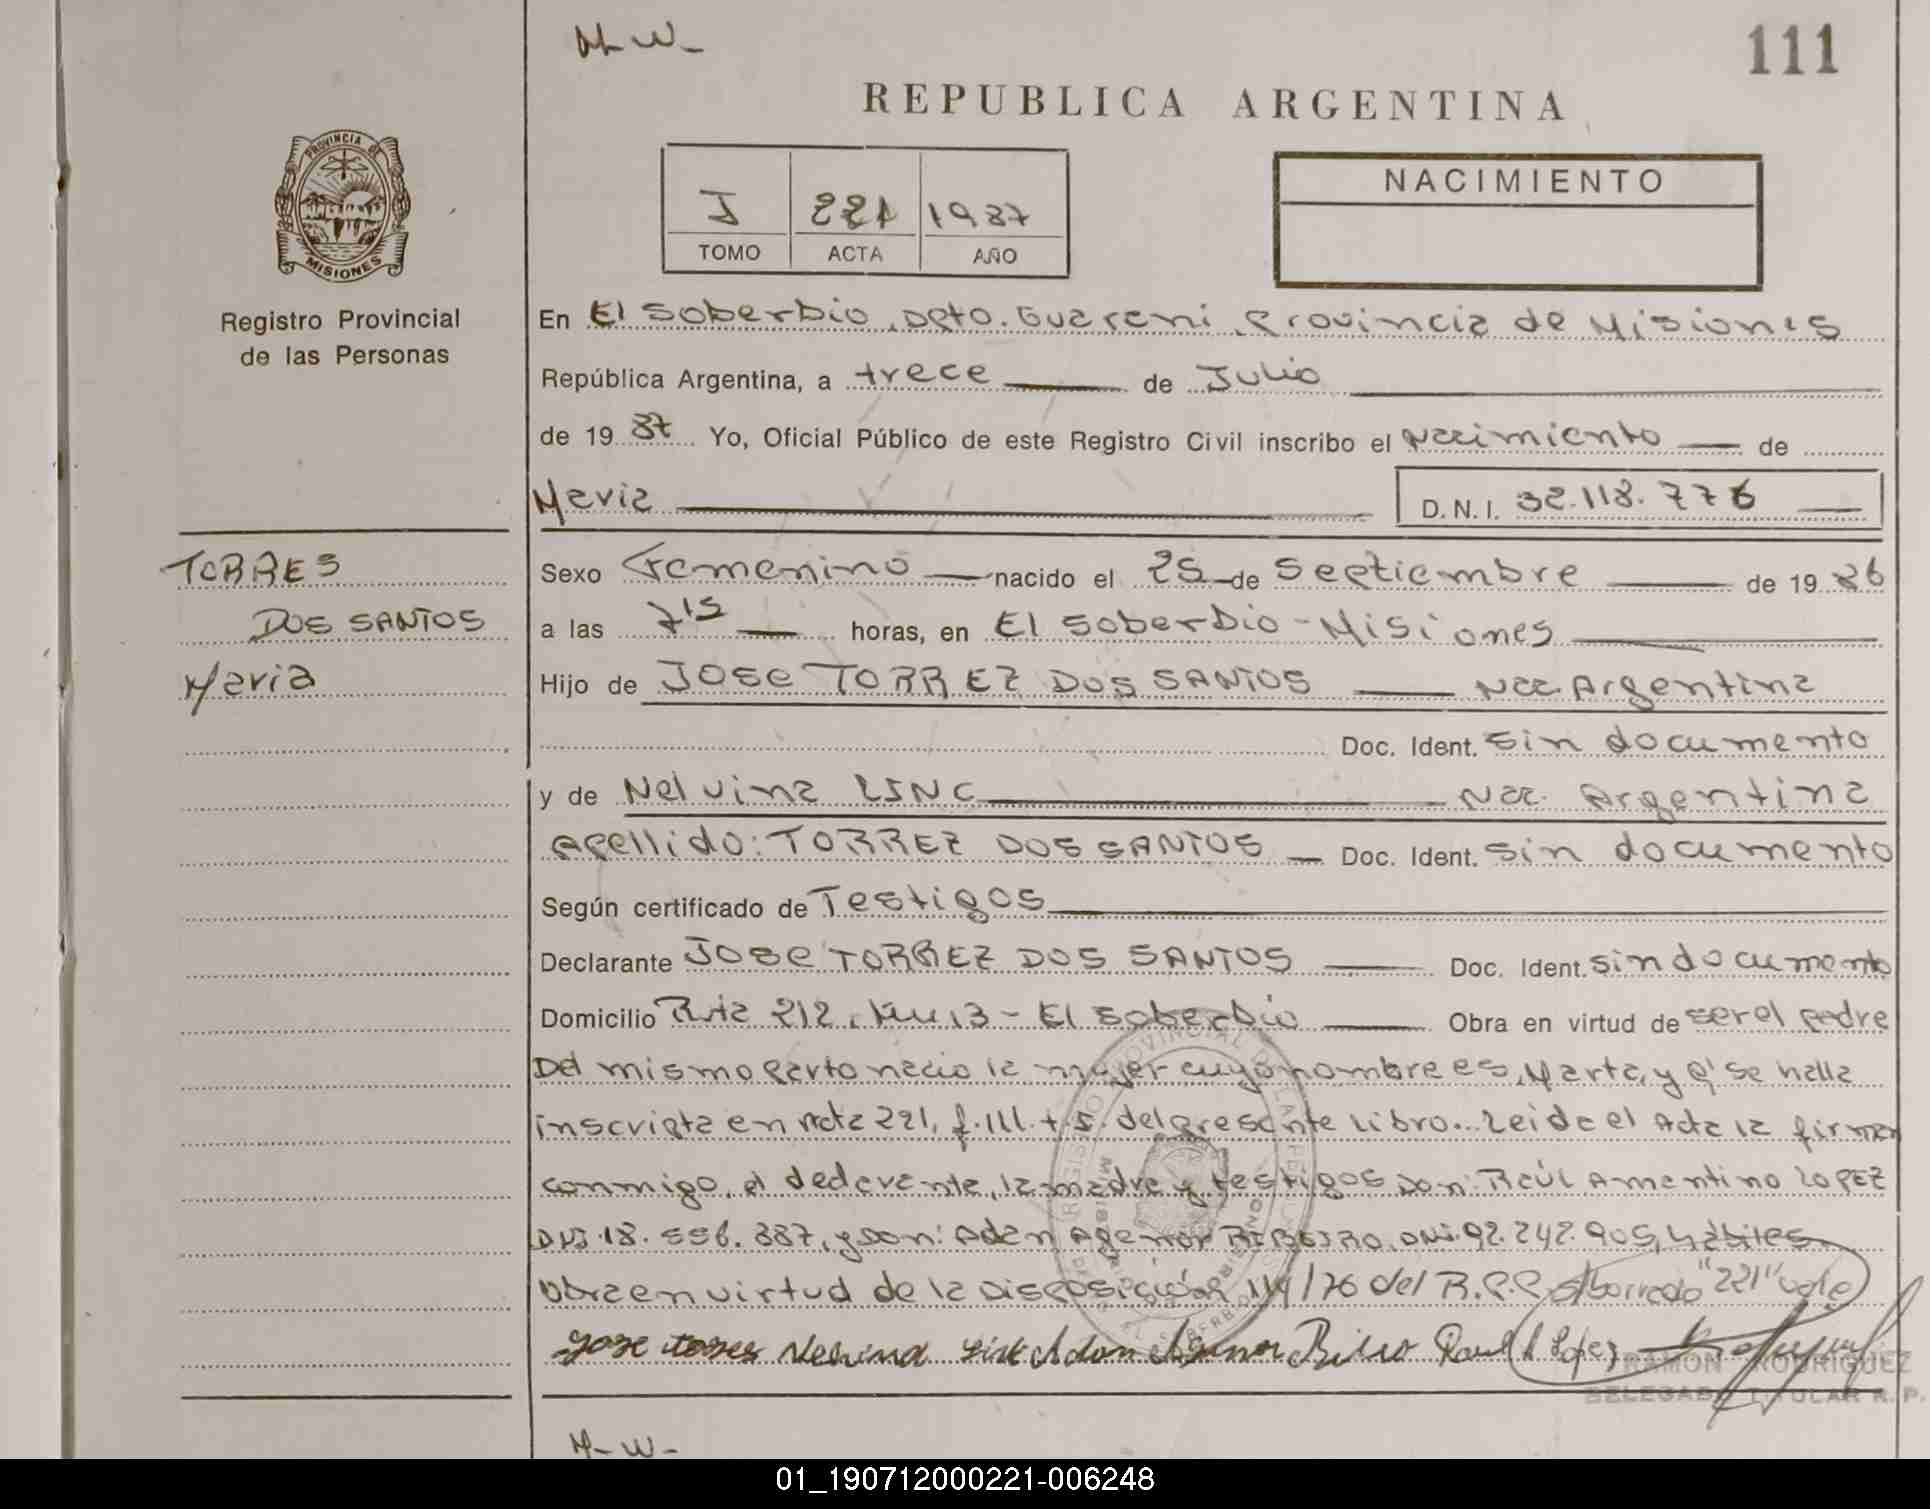 M-W-
111
REPUBLICA ARGENTINA
PROVINCIA DE
MISIONES
Registro Provincial
de las Personas
I 221 1987
TOMO ACTA AÑO
NACIMIENTO
En El Soberbio, Dpto. Guarani, Provincia de Misiones
República Argentina, a trece de Julio
de 1987 Yo, Oficial Público de este Registro Civil inscribo el Nacimiento de
Maria D.N.I. 32.118.776
TORRES
DOS SANTOS
Maria
Sexo Femenino nacido el 25 de Septiembre de 1986
a las 7 15 horas, en El Soberbio - Misiones
Hijo de JOSE TORREZ DOS SANTOS Nac. Argentina
Doc. Ident. sin documento
y de Nelvina LINC Nac. Argentina
Apellido: TORREZ DOS SANTOS Doc. Ident. sin documento
Según certificado de Testigos
Declarante JOSE TORREZ DOS SANTOS Doc. Ident. sin documento
Domicilio Ruta 212, Km 13 - El Soberbio Obra en virtud de ser el padre
Del mismo parto nacio la mujer cuyo nombre es, Marta, y q' se halla
inscripta en Acta 221, f. 111. t. I. del presente Libro.. Leida el Acta la firman
conmigo, el declarante, la madre y testigos Don: Raúl Amantino LOPEZ
DNI. 18.556.387, y Don: Adan Agenor RIBEIRO, DNI. 92.242.905, hábiles
Obra en virtud de la Disposición 114/76 del R.P.P. S/borrado "221" vale
Jose torres Nelvina Link Adan Agenor Ribero Raul A Lopez
RAMON RODRIGUEZ
DELEGADO TITULAR R. P.
M-W-
01_190712000221-006248